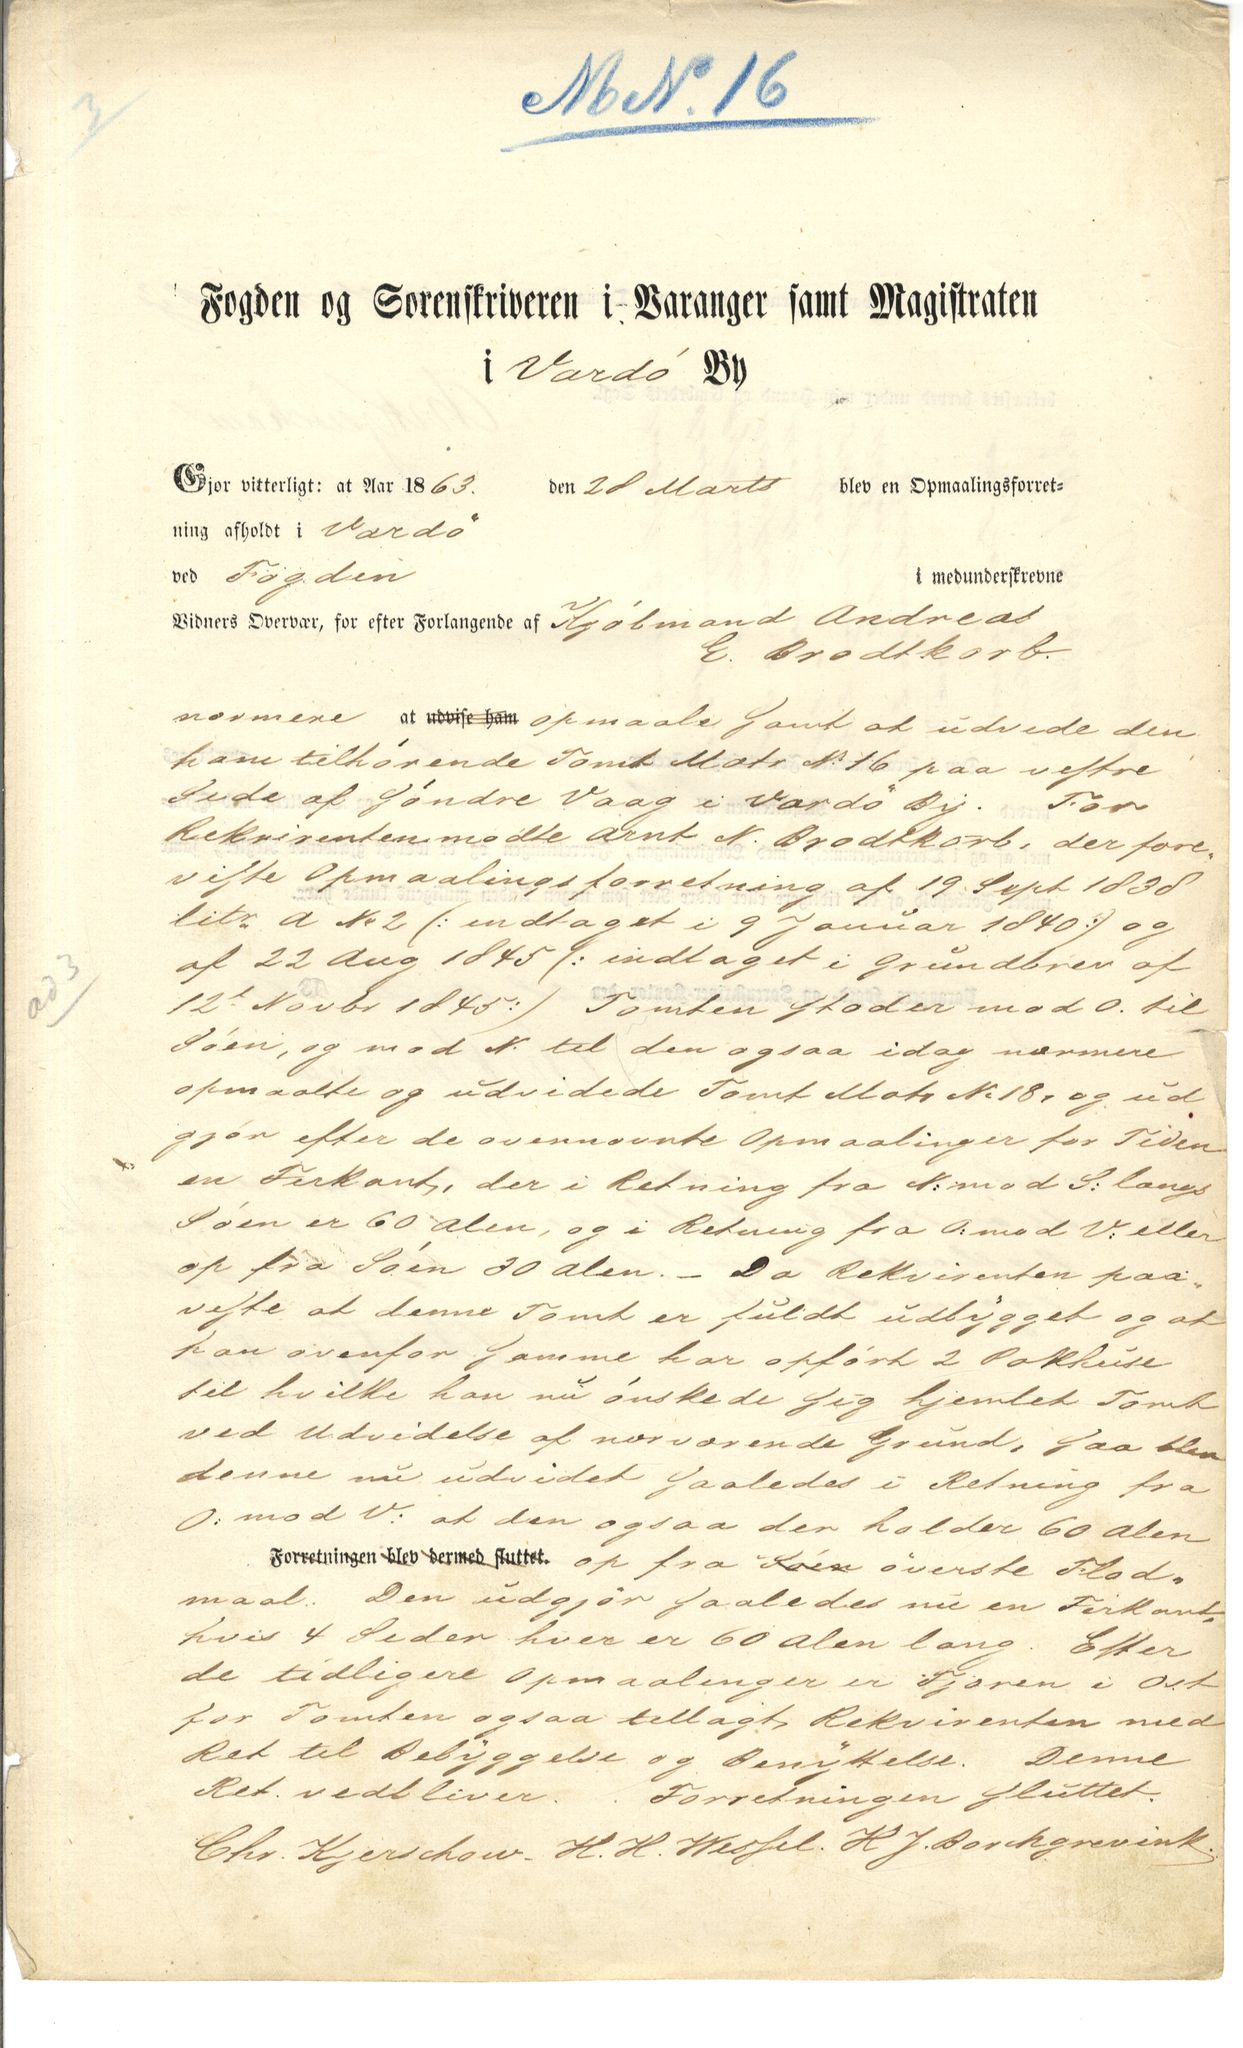 MN. 16
3
Fogden og Sorenskriveren i Varanger samt Magistraten
i Vardö By
Gjør vitterligt: at Aar 1863. den 28 Marts blev en Opmaalingsforret-
ning afholdt i Vardö
ved Fogden i medunderskrevne
Vidners Overvær, for efter Forlangende af Kjöbmand Andreas
E. Brodtkorb.
nærmere at udvise ham opmaale samt at udvide den
ham tilhörende Tomt Matr No 16 paa vestre
Side af Söndre Vaag i Vardö By. For
Rekvirenten mödte Arnt N. Brodtkorb, der fore-
viste Opmaalingsforretning af 19 Sept 1838
litr. A No 2 (: indtaget i 9 Januar 1840:) og
af 22 Aug 1845 (: indtaget i Grundbrev af
ad 3
12t Novbr 1845:) Tomten stöder mod O. til
Söen, og mod N. til den ogsaa idag nærmere
opmaalte og udvidede Tomt Matr No 18, og ud
gjör efter de ovennævnte Opmaalinger for Tiden
en Firkant, der i Retning fra N: mod S: langs
Söen er 60 Alen, og i Retning fra O: mod V: eller
op fra Söen 30 Alen. – Da Rekvirenten paa-
viste at denne Tomt er fuldt udbygget og at
han ovenfor samme har opfört 2 Pakhuse
til hvilke han nu önskede sig hjemlet Tomt
ved Udvidelse af nærværende Grund, saa blev
denne nu udvidet saaledes i Retning fra
O: mod V: at den ogsaa der holder 60 Alen
Forretningen blev dermed sluttet. op fra Söen överste Flod-
maal. Den udgjör saaledes nu en Firkant,
hvis 4 Sider hver er 60 Alen lang. Efter
de tidligere Opmaalinger er Fjæren i Ost
for Tomten ogsaa tillagt Rekvirenten med
Ret til Bebyggelse og Benyttelse. Denne
Ret vedbliver. Forretningen sluttet.
Chr. Kjerschow. H. H. Wessel. H J. Borchgrevink.